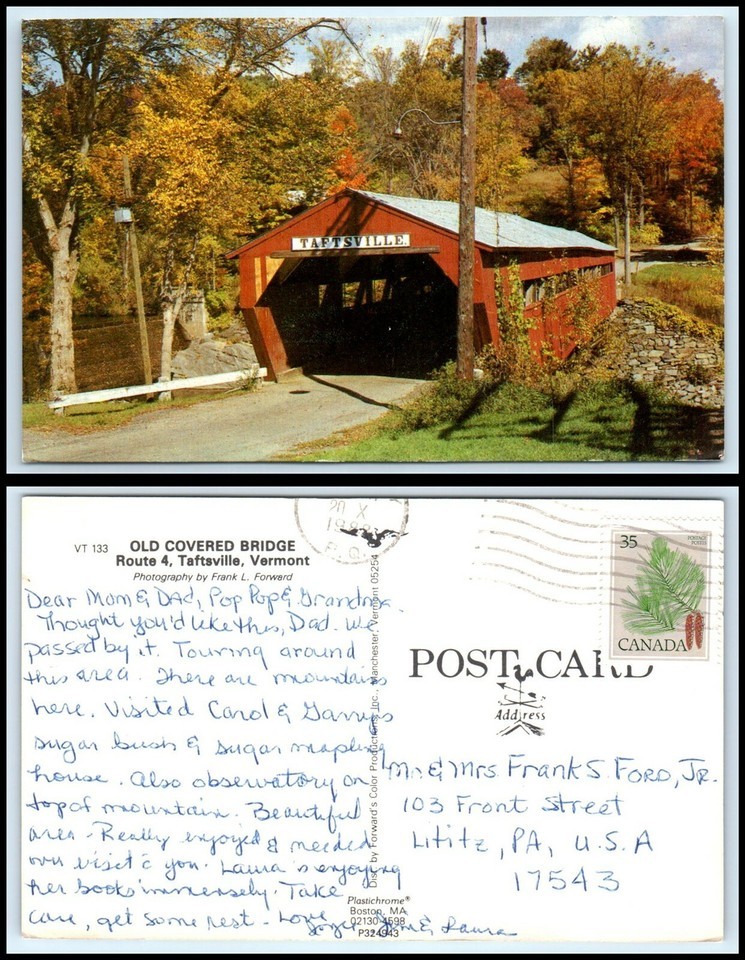 TAFTSVILLE
VT 133
OLD COVERED BRIDGE
Route 4, Taftsville, Vermont
Photography by Frank L. Forward
Dear Mom & Dad, Pop Pop & Grandma.
Thought you'd like this, Dad. We
passed by it. Touring around
this area. There are mountains
here. Visited Carol & Garry's
sugar bush & sugar mapling
house. Also observatory on
top of mountain. Beautiful
area. Really enjoyed & needed
our visit c̄ you. Laura's enjoying
her books immensely. Take
care, get some rest. Love
Joyce, Jim & Laura
Dist. by Forward's Color Productions, Inc., Manchester, Vermont 05254
Plastichrome®
Boston, MA
02130-4598
P324943
20 X
198
P.Q.
35
POSTAGE
POSTES
CANADA
POST CARD
Address
Mr. & Mrs. Frank S. Ford, Jr.
103 Front Street
Lititz, PA, U.S.A
17543